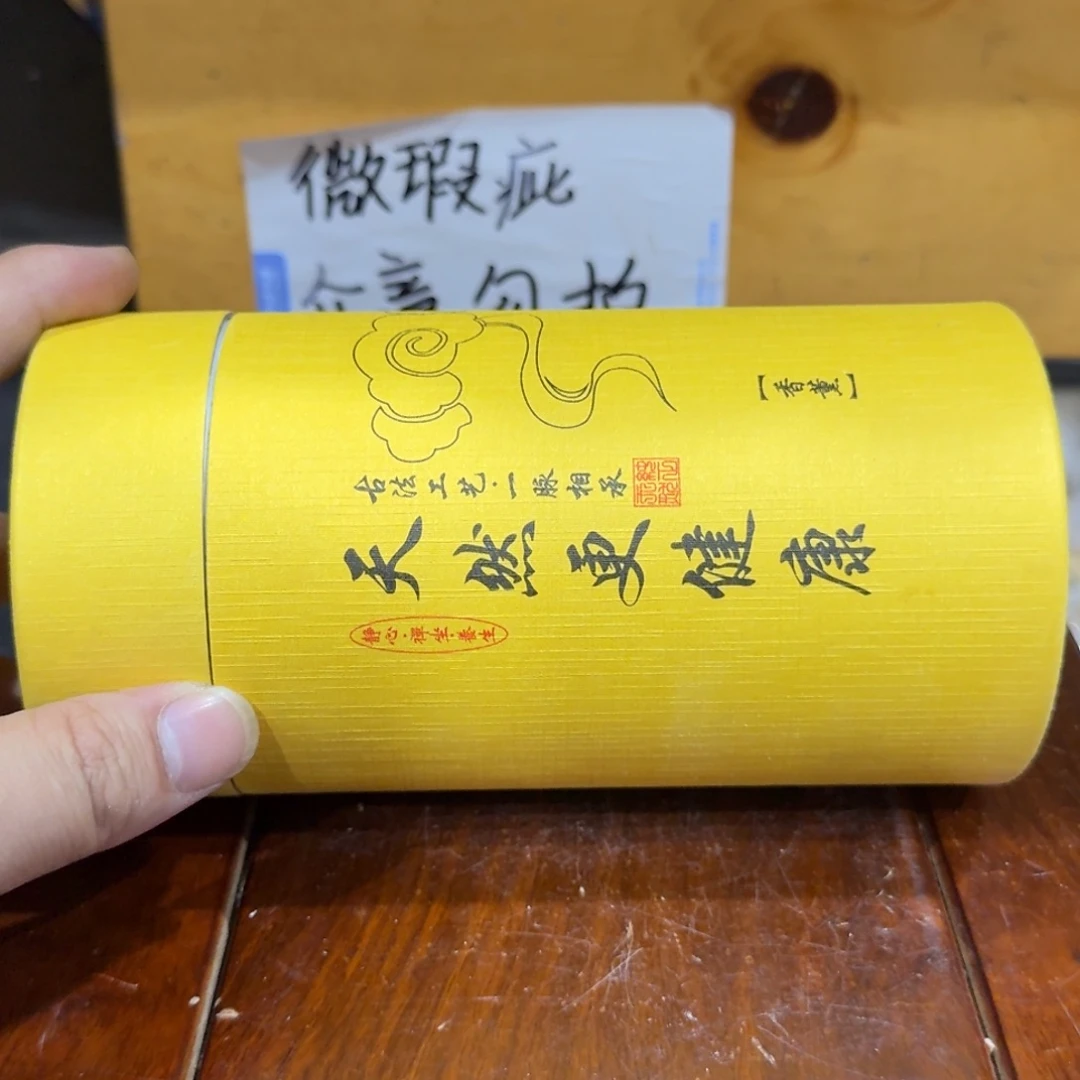 微瑕疵
介意勿拍
【香薰】
古法工艺·一脉相承
天然更健康
静心·禅坐·養生